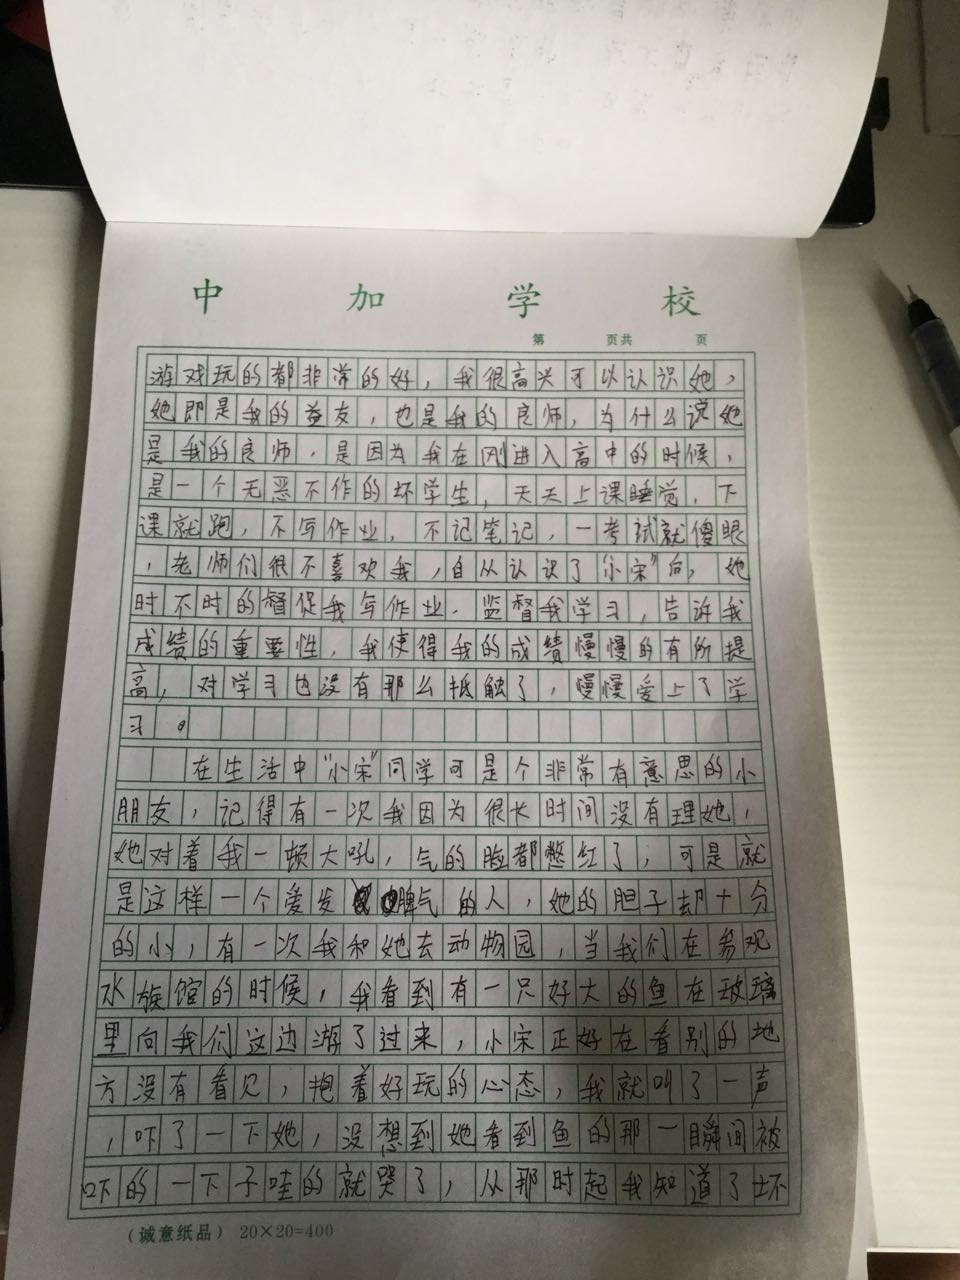 中加学校
第 页共 页
游戏玩的都非常的好，我很高兴可以认识她，
她即是我的益友，也是我的良师，为什么说她
是我的良师，是因为我在刚进入高中的时候，
是一个无恶不作的坏学生，天天上课睡觉，下
课就跑，不写作业，不记笔记，一考试就傻眼
，老师们很不喜欢我，自从认识了“小宋”向，她
时不时的督促我写作业．监督我学习，告诉我
成绩的重要性，我使得我的成绩慢慢的有所提
高，对学习也没有那么抵触了，慢慢爱上了学
习。
在生活中“小宋”同学可是个非常有意思的小
朋友，记得有一次我因为很长时间没有理她，
她对着我一顿大吼，气的脸都憋红了，可是就
是这样一个爱发脾气的人，她的胆子却十分
的小，有一次我和她去动物园，当我们在参观
水族馆的时候，我看到有一只好大的鱼在玻璃
里向我们这边游了过来，小宋正好在看别的地
方没有看见，抱着好玩的心态，我就叫了一声
，吓了一下她，没想到她看到鱼的那一瞬间被
吓的一下子哇的就哭了，从那时起我知道了坏
（诚意纸品）20×20=400